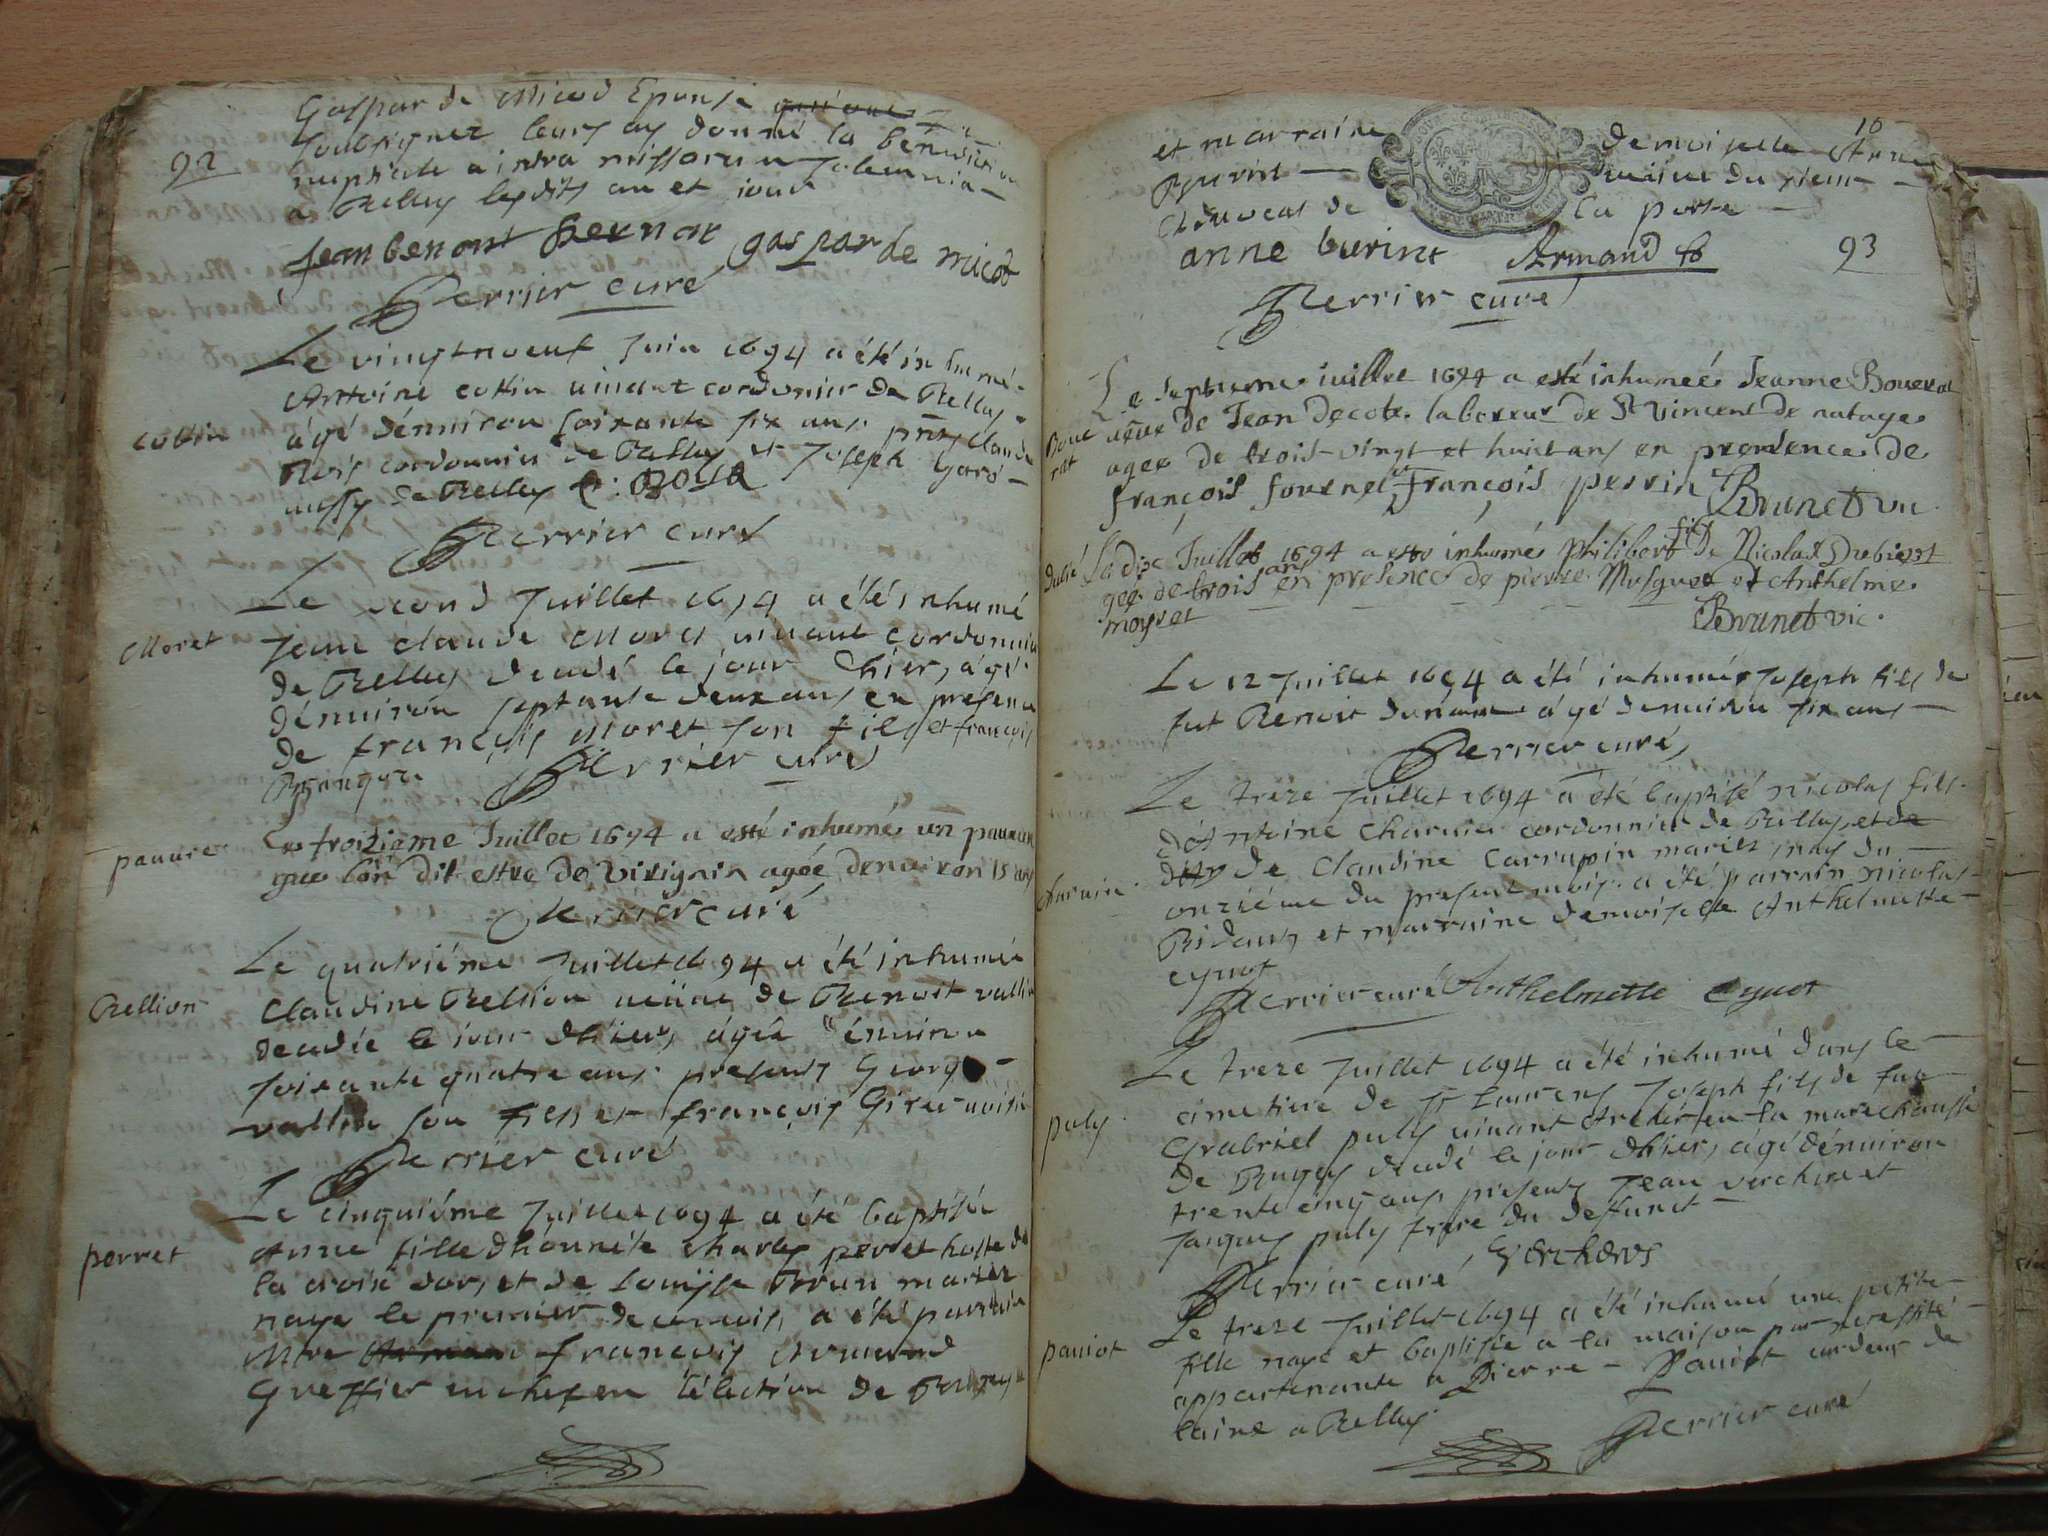 92
Gasparde Micod Epouse
soubsignez leurs ay donné la benediction
nuptiale intra missarum solemnia
a Belley lesdits an et jour
jean benoit gasparde micod
Perrier curé
Le vingtneuf Juin 1694 a été inhumé
Antoine cottin vivant cordonier de Belley
cottin
âgé dénuiron soixante six ans pnts Claude
Rois cordonnier de Belley et Joseph
de Belley C: ROYS
Perrier curé
Le second Juillet 1694 a été inhumé
Moret
Jean claude Moret vivant cordonnier
de Belley decedé le jour dhier, âgé
dénuiron septante deux ans en presence
de françois Moret son fils et françois
Perrier curé
Le troizieme Juillet 1694 a esté inhumé un pauure
pauure
que lón dit estre de Virignin agée denuiron 15 ans
Perrier curé
Le quatriéme Juillet 1694 a été inhumée
Rellion
Claudine Rellion ueüue de Benoit vallin
decedée le iour dhier, âgée dénuiron
soixante quatre ans presents George
vallin son fils et françois
Perrier curé
Le cinquiéme Juillet 1694 a été baptisée
perret
Anne fille dhonnéte charles perret hoste de
la croix dor, et de Louyse Brun mariez
naye le premier de ce mois, a été parrain
Mtre françois Armand
Greffier en chef en l'élection de Bugey
10
et marraine demoiselle Anne
Burint du sieur
de la perse
anne burint Armand
93
Perrier curé
Le septieme iuillet 1694 a esté inhumée Jeanne Bouerat
Bouerat
ueue de Jean decote laboreur de St Vincent de
agee de trois-vingt et huict ans en presence de
françois fournel et François perrin Brunet vic
Le dix Juillet 1694 a esto inhumé Philibert fils De Nicolas
gée de trois ans en presence de pierre Musquet et Anthelme
moyret
Brunet vic.
Le 12 Juillet 1694 a été inhumé Joseph fils de
fut Benoit âgé denuiron six ans
Perrier curé
Le treze Juillet 1694 a été baptisé nicolas fils
dAntoine Charuin cordonnier de Belley et de
de Claudine Carrupin mariez, nay du
charuin
onziéme du present mois. a été parrain nicolas
et marraine demoiselle Anthelmette
cynot
Perrier curé Anthelmette Cynot
Le treze Juillet 1694 a été inhumé dans le
cimetiere de St Laurens Joseph fils de fut
puly
Gabriel puly uiuant Archer en la marechaussée
de Bugey decedé le jour dhier, âgé dénuiron
trente cinq ans, presents Jean verchere et
Jaques puly frere du defunct
Perrier curé
Le treze Juillet 1694 a été inhumé une petite
pauiot
fille naye et baptisée a la maison par necessité
appartenante a Pierre Pauiot cardeur de
laine a Belley
Perrier curé